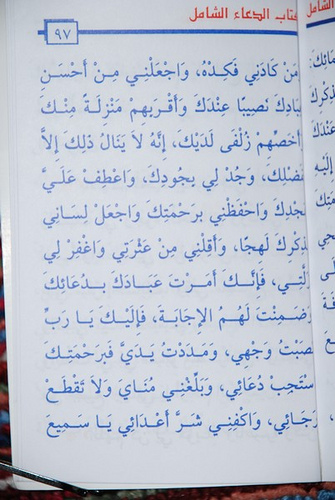 كتاب الدعاء الشامل
٩٧
مَنْ كَادَنِي فَكِدْهُ، وَاجْعَلْنِي مِنْ أَحْسَنِ
عِبَادِكَ نَصِيبًا عِنْدَكَ وَأَقْرَبِهِمْ مَنْزِلَةً مِنْكَ
وَأَخَصِّهِمْ زُلْفَى لَدَيْكَ، إِنَّهُ لاَ يَنَالُ ذلِكَ إِلاَّ
بِفَضْلِكَ، وَجُدْ لِي بِجُودِكَ، وَاعْطِفْ عَلَيَّ
بِمَجْدِكَ وَاحْفَظْنِي بِرَحْمَتِكَ وَاجْعَلْ لِسَانِي
بِذِكْرِكَ لَهِجًا، وَأَقِلْنِي مِنْ عَثْرَتِي وَاغْفِرْ لِي
زَلَّتِي، فَإِنَّكَ أَمَرْتَ عِبَادَكَ بِدُعَائِكَ
وَضَمِنْتَ لَهُمُ الإِجَابَةَ، فَإِلَيْكَ يَا رَبِّ
نَصَبْتُ وَجْهِي، وَمَدَدْتُ يَدَيَّ فَبِرَحْمَتِكَ
اسْتَجِبْ دُعَائِي، وَبَلِّغْنِي مُنَايَ وَلاَ تَقْطَعْ
رَجَائِي، وَاكْفِنِي شَرَّ أَعْدَائِي يَا سَمِيعَ